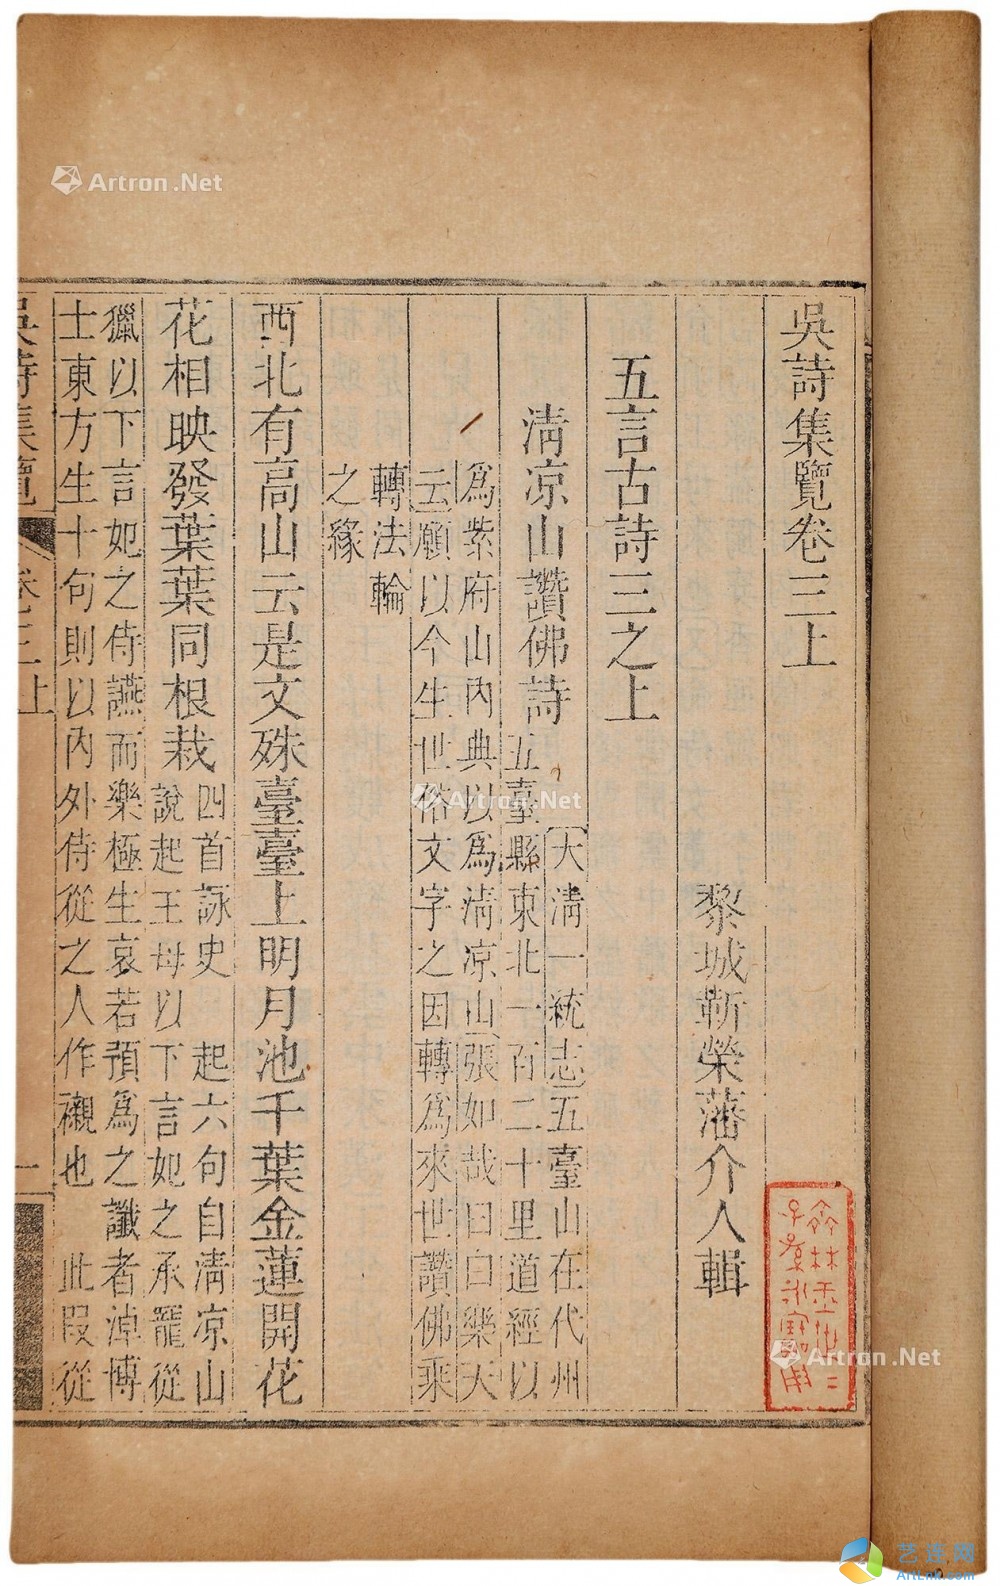 吳詩集覽卷三上
黎城靳榮藩介人輯
五言古詩三之上
清凉山讚佛詩
大清一統志五臺山在代州
五臺縣東北一百二十里道經以
爲紫府山內典以爲清凉山張如哉曰白樂天
云願以今生世俗文字之因轉爲來世讚佛乘
轉法輪
之緣
西北有高山云是文殊臺臺上明月池千葉金蓮開花
花相映發葉葉同根栽
四首詠史 起六句自清凉山
說起王母以下言妃之承寵從
獵以下言妃之侍讌而樂極生哀若預爲之讖者淖博
士東方生十句則以內外侍從之人作襯也 此叚從
吳詩集覽 卷三上 一
Artron.Net
Artron.Net
Artron.Net
艺连网
ArtLink.com